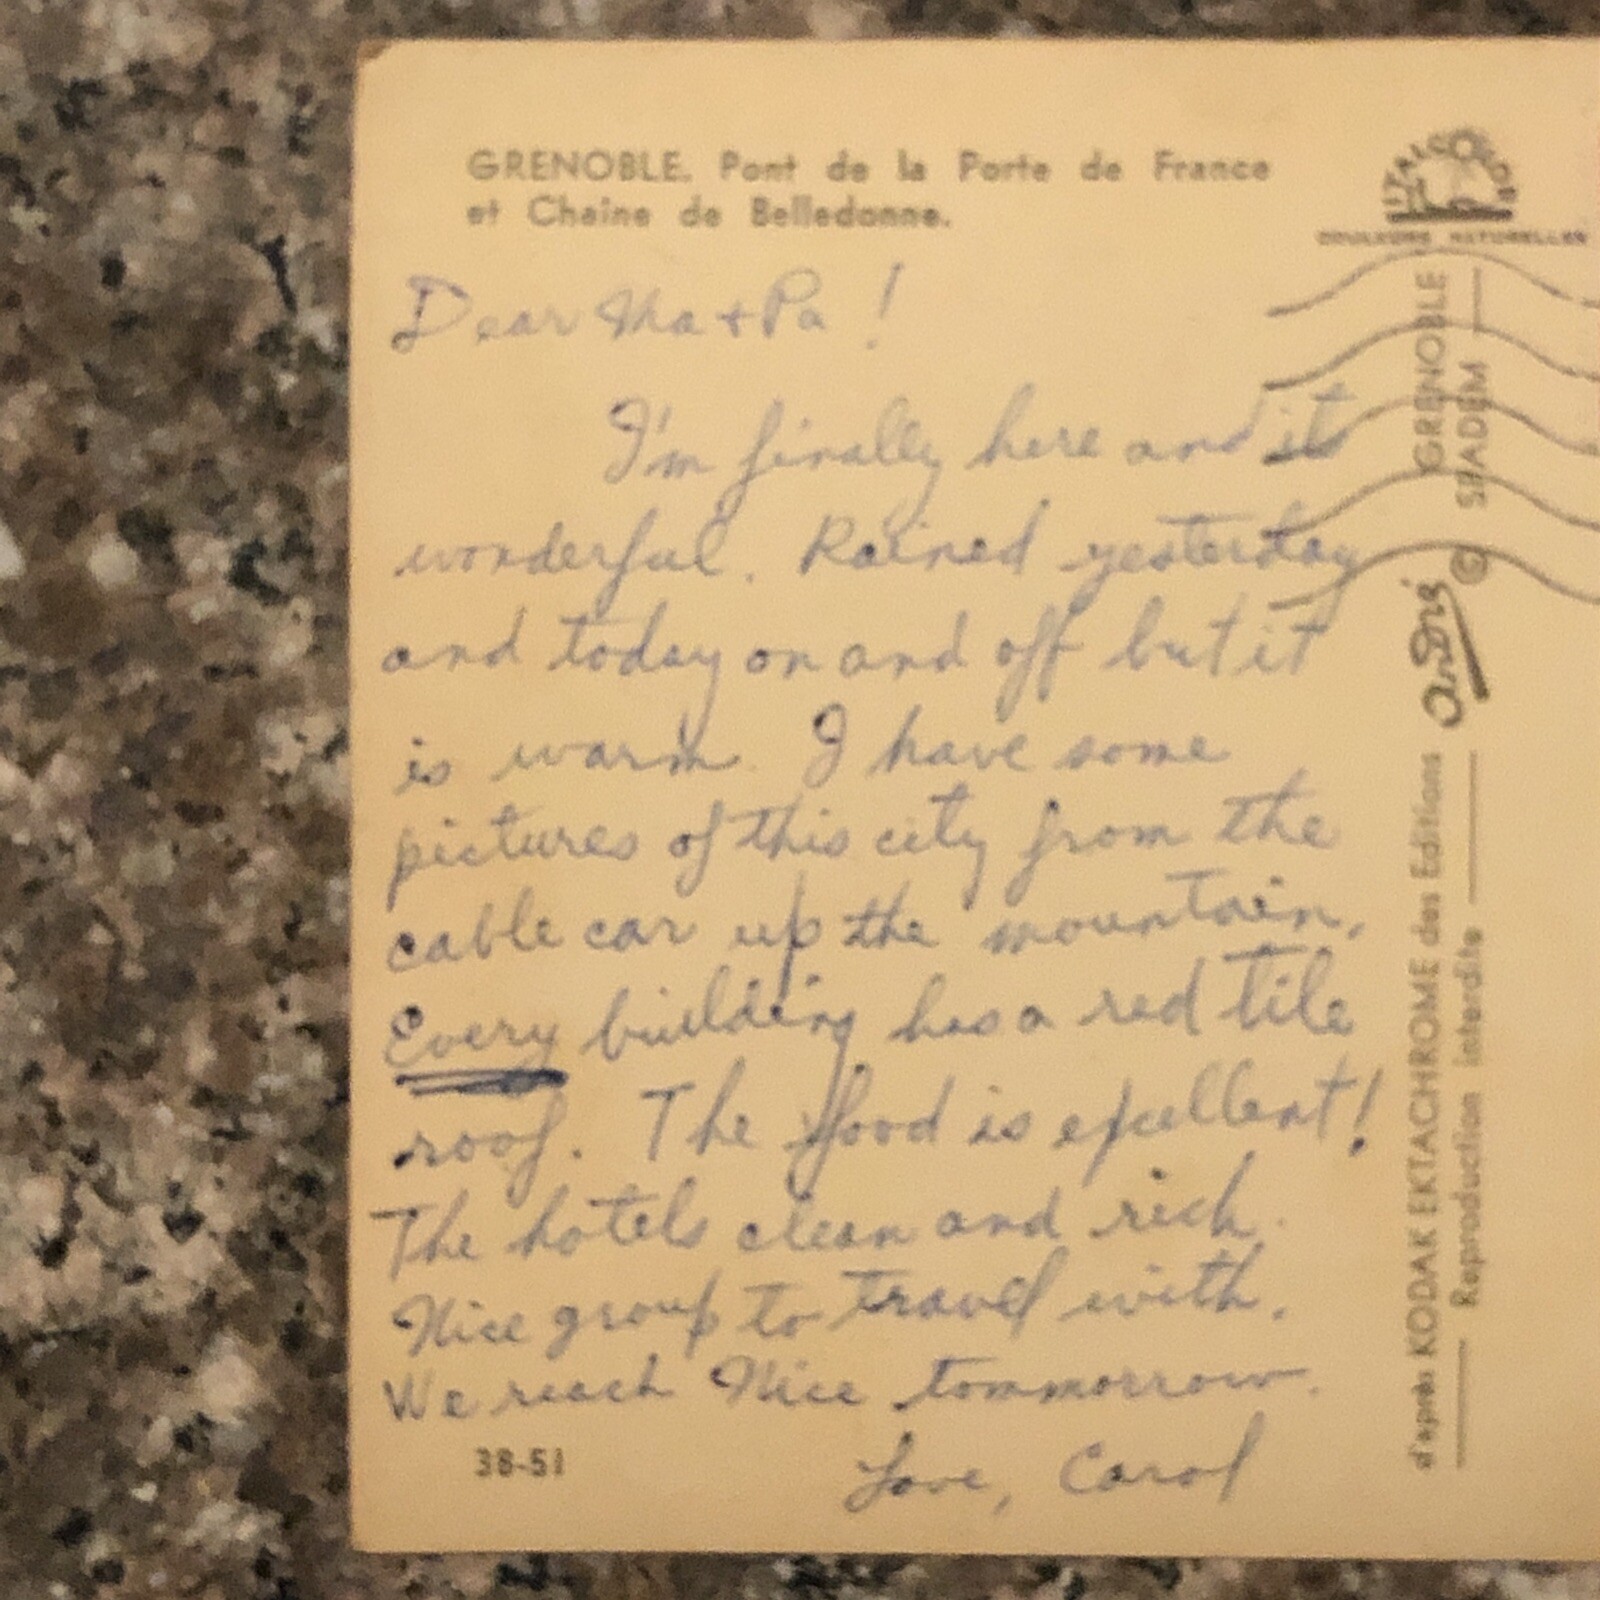 GRENOBLE. Pont de la Porte de France
et Chaîne de Belledonne.
ITALCOLOR
COULEURS NATURELLES
Dear Ma + Pa !
I'm finally here and its
wonderful. Rained yesterday
and today on and off but it
is warm. I have some
pictures of this city from the
cable car up the mountain.
Every building has a red tile
roof. The food is excellent!
The hotels clean and rich.
Nice group to travel with.
We reach Nice tommorrow.
Love, Carol
38-51
d'après KODAK EKTACHROME des Editions André GRENOBLE
Reproduction interdite © SPADEM